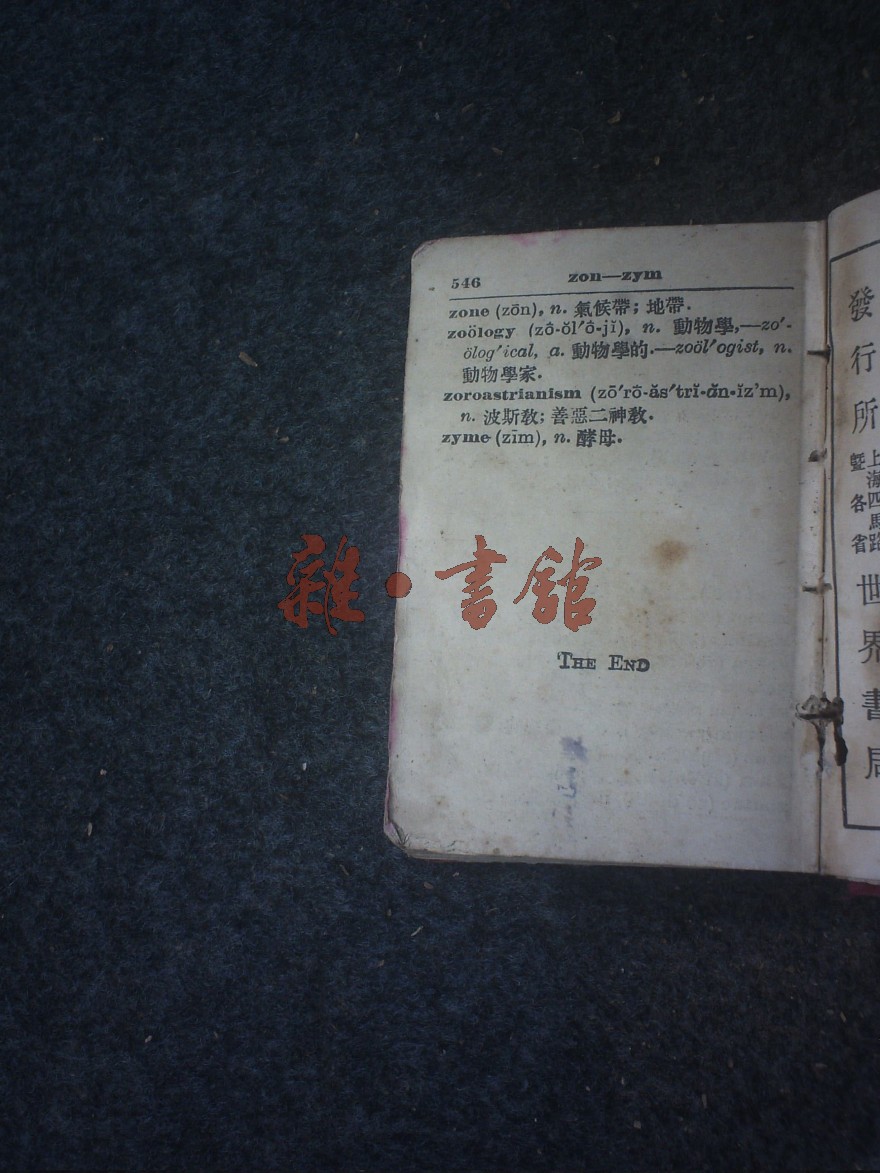 546
zon—zym
zone (zōn), n. 氣候帶; 地帶.
zoölogy (zō-ŏl′ō-jĭ), n. 動物學,—zo′-
ölog′ical, a. 動物學的.—zoöl′ogist, n.
動物學家.
zoroastrianism (zō′rō-ăs′trĭ-ăn-ĭz'm),
n. 波斯敎; 善惡二神敎.
zyme (zīm), n. 酵母.
雜·書館
THE END
發行所
上海四馬路
暨各省
世界書局